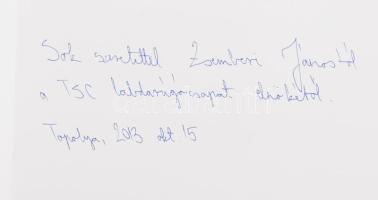 Sok szeretettel Zsemberi Jánostól
a TSC labdarúgócsapat elnökétől.
Topolya, 2013 okt 15